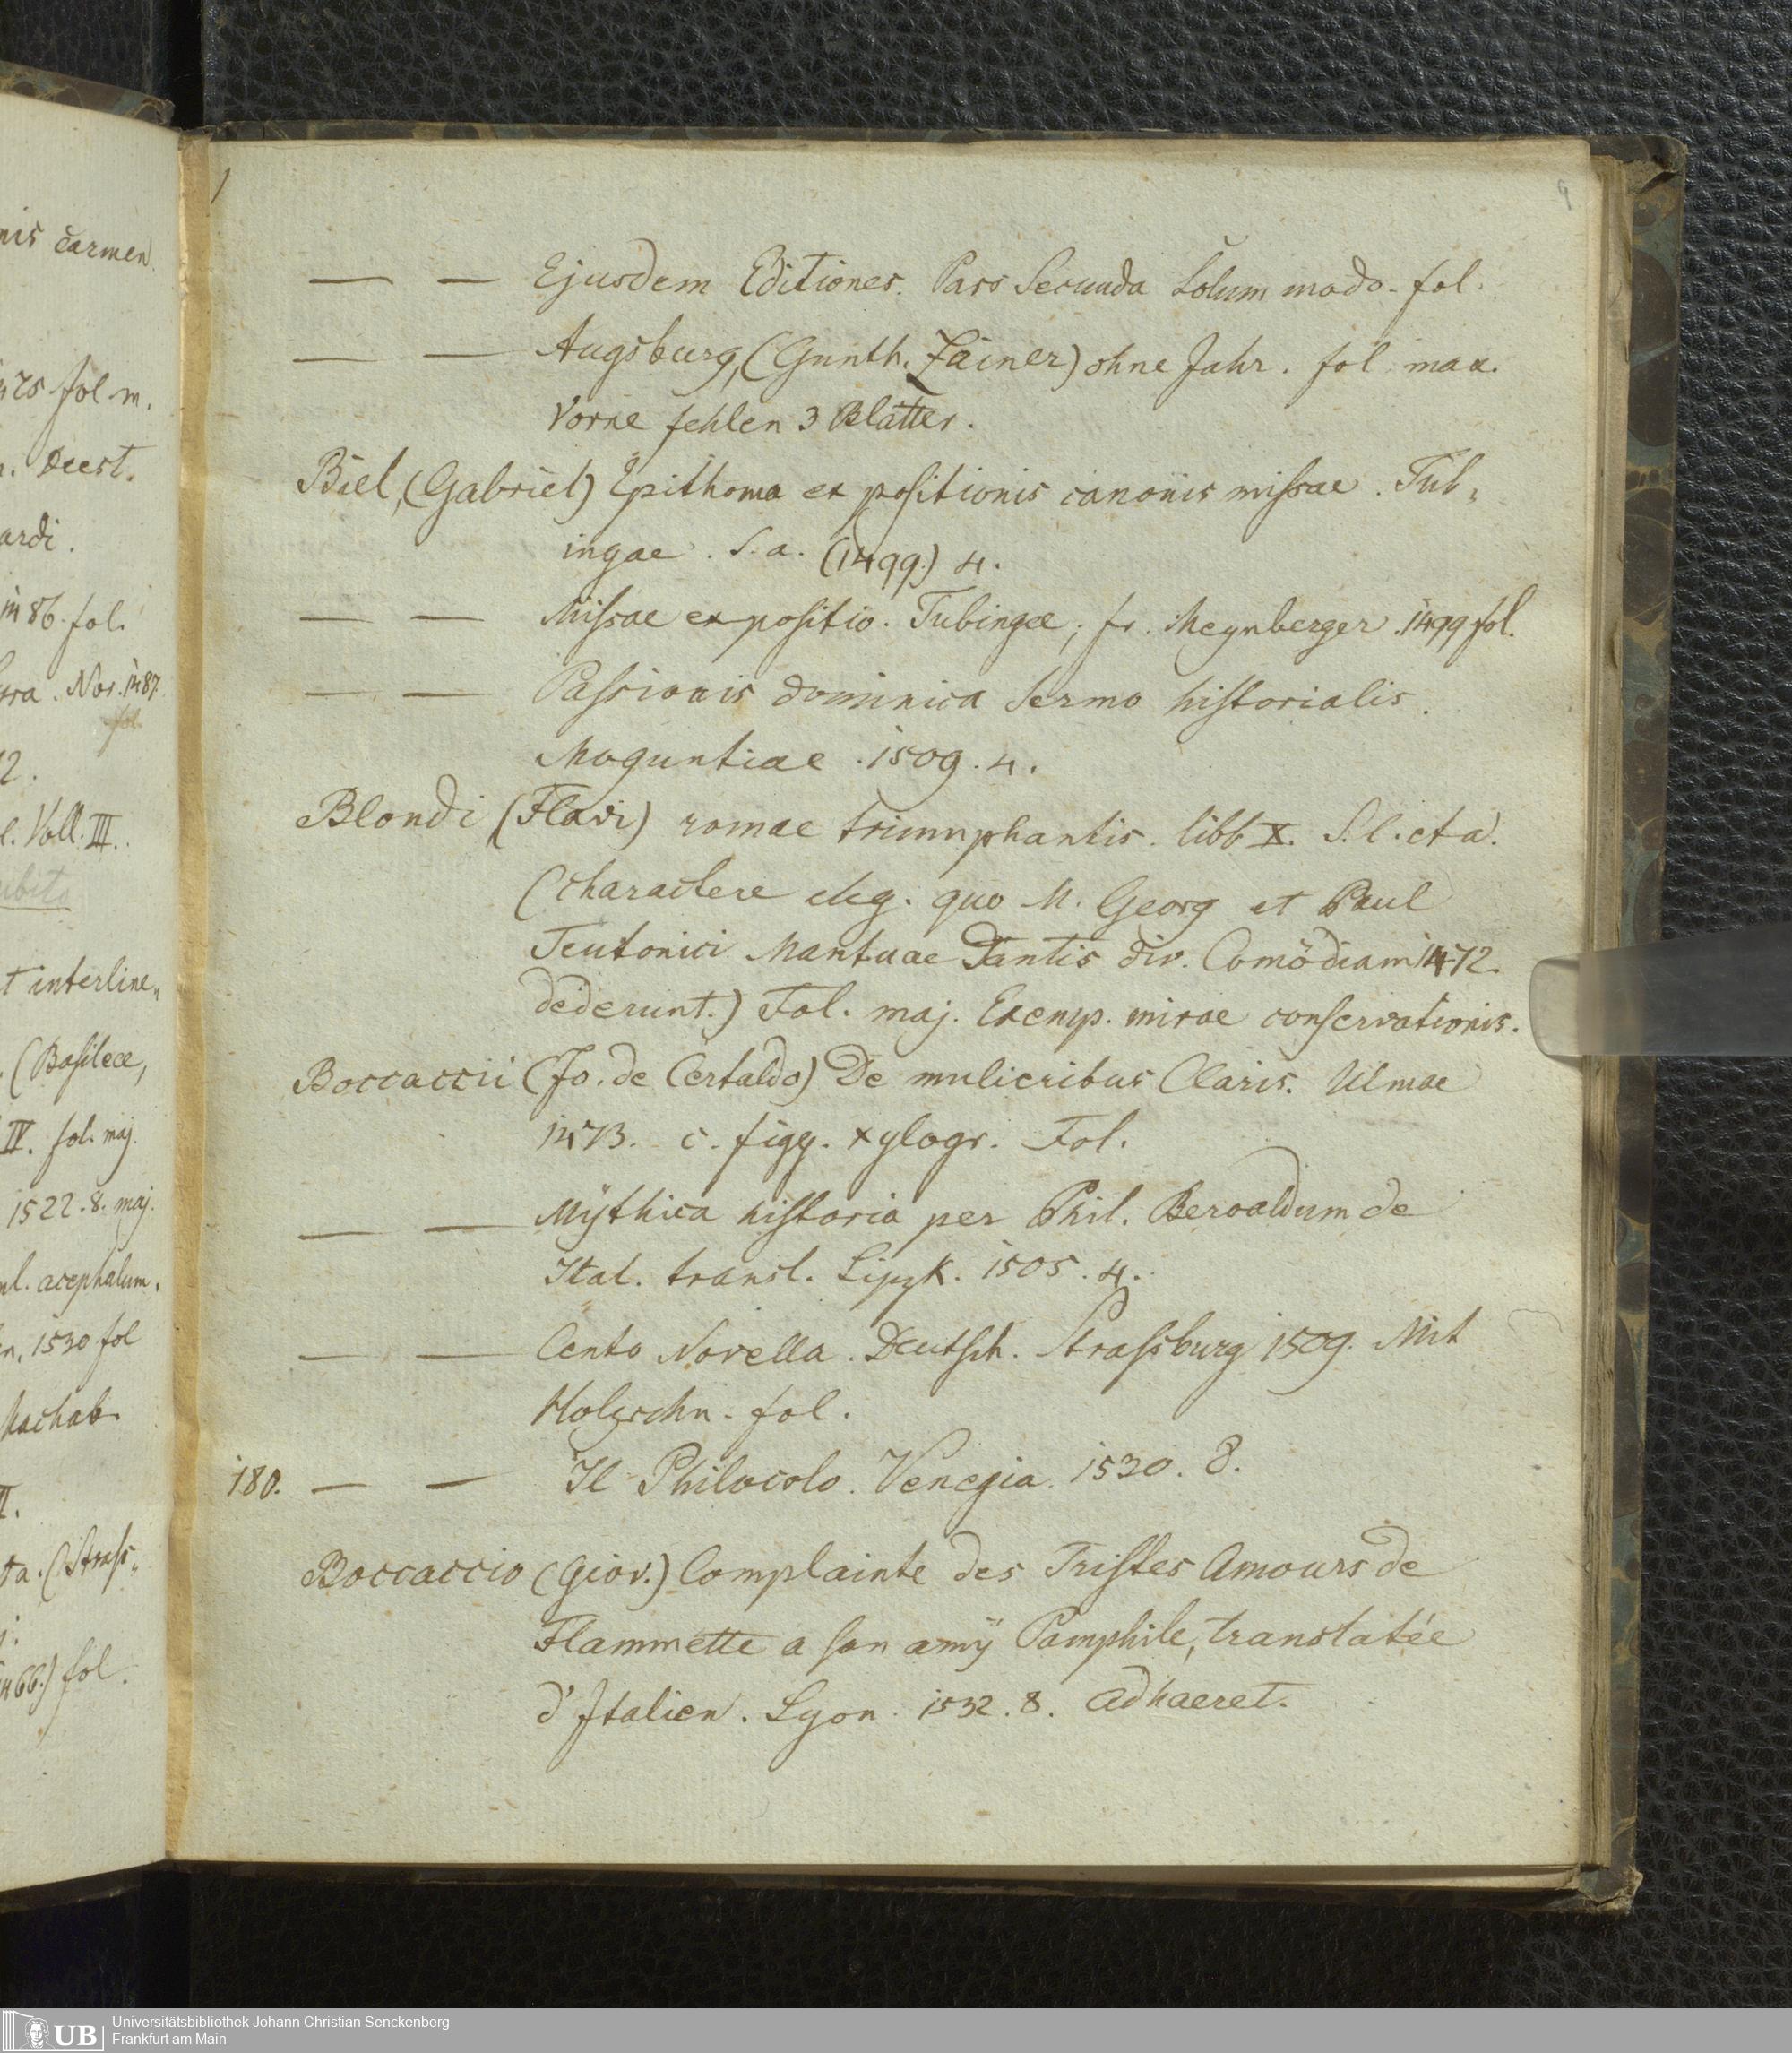 nis carmen.
475 fol m.
. Deest.
ardi.
1486. fol.
ura. Nor. 1487.
fol.
12.
l. Voll. III.
ubit
t interline„
. (Basileae,
IV. fol. maj.
1522. 8. maj.
ul. acephalum.
n, 1530 fol
Machab.
II.
ta. (Strass„
1466.) fol.
9
— — Ejusdem Editiones. Pars Secunda Solum modo. fol.
— — Augsburg, (Gunth. Zainer) ohne Jahr. fol. max.
Vorne fehlen 3 Blätter.
Biel, (Gabriel) Epithoma expositionis canonis missae. Tub„
ingae. S. a. (1499.) 4.
— — Missae expositio. Tubingae, fr. Meynberger. 1499 fol.
— — Passionis dominica Sermo historialis.
Moguntiae. 1509. 4.
Blondi (Flavi) romae triumphantis. libb X. S. l. et a.
(charactere eleg. quo M. Georg et Paul
Teutonici Mantuae Dantis div. Comödiam 1472.
dederunt.) Fol. maj. Exemp. mirae conservationis.
Boccaccii (Jo. de Certaldo) De mulieribus Claris. Ulmae
1473. c. figg. xylogr. Fol.
— — Mÿthica historia per Phil. Beroaldum de
Ital. transl. Lipzk. 1505. 4.
— — Cento Novella. Deutsch. Strassburg 1509. Mit
Holzschn. fol.
180. — — Il Philocolo. Venegia. 1530. 8.
Boccaccio (Giov.) Complainte des Tristes Amours de
Flammette a son amÿ Pamphile, translatée
d'Italien. Lyon. 1532. 8. Adhaeret.
UB
Universitätsbibliothek Johann Christian Senckenberg
Frankfurt am Main